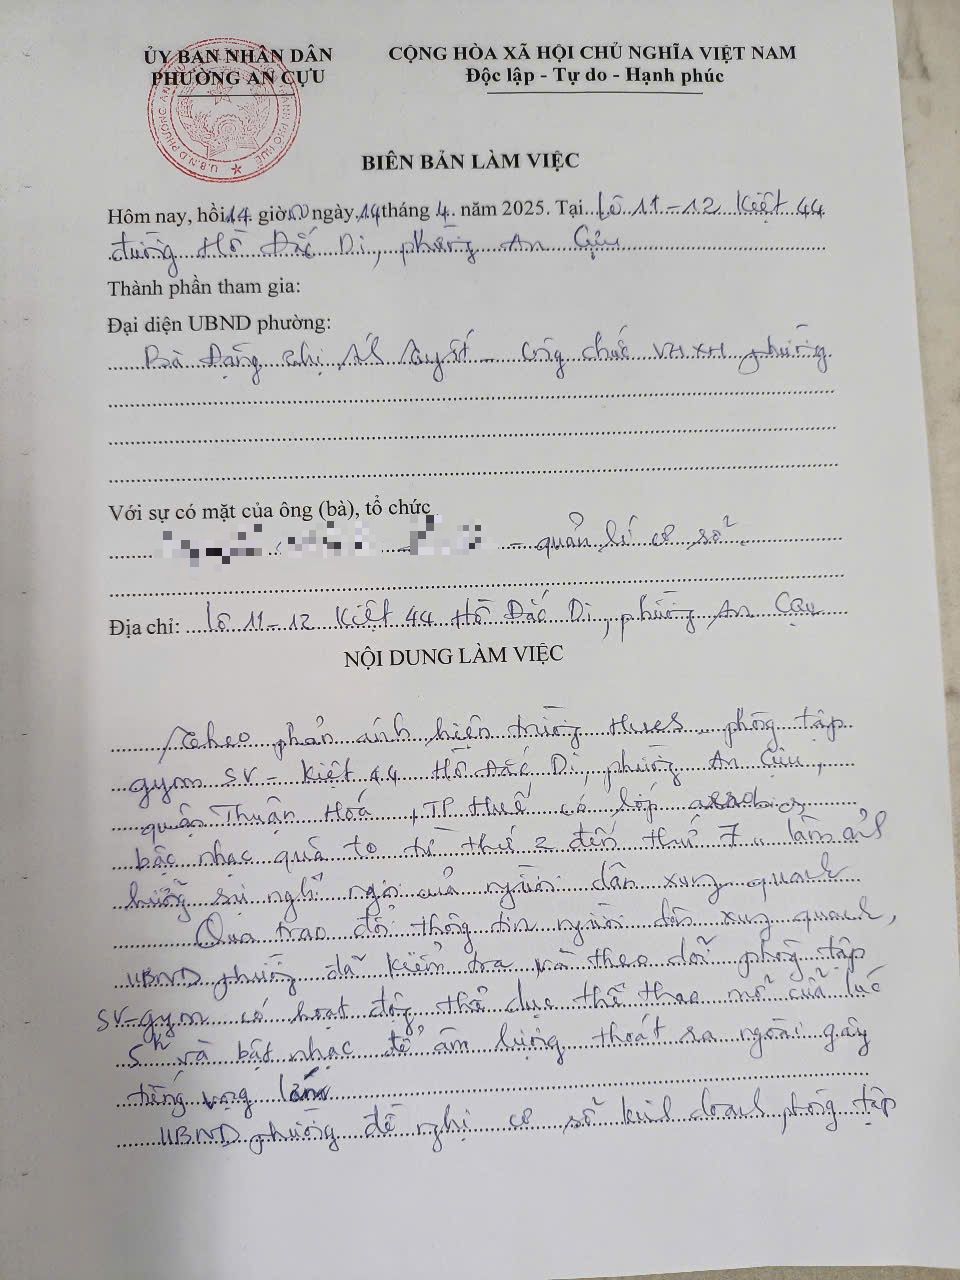 ỦY BAN NHÂN DÂN
PHƯỜNG AN CỰU
CỘNG HÒA XÃ HỘI CHỦ NGHĨA VIỆT NAM
Độc lập - Tự do - Hạnh phúc
BIÊN BẢN LÀM VIỆC
Hôm nay, hồi 14 giờ 00 ngày 14 tháng 4 năm 2025. Tại Lô 11-12 Kiệt 44
đường Hồ Đắc Di, phường An Cựu
Thành phần tham gia:
Đại diện UBND phường:
Bà Đặng Thị - Công chức VHXH phường
Với sự có mặt của ông (bà), tổ chức
- quản lí cơ sở
Địa chỉ: lô 11-12 Kiệt 44 Hồ Đắc Di, phường An Cựu
NỘI DUNG LÀM VIỆC
Theo phản ánh hiện trường HueS, phòng tập
gym SV - Kiệt 44 Hồ Đắc Di, phường An Cựu,
quận Thuận Hoá, TP Huế có lớp
bậc nhạc quá to từ thứ 2 đến thứ 7 làm ảnh
hưởng sự nghỉ ngơi của người dân xung quanh
Qua trao đổi thông tin người dân xung quanh,
UBND phường đã kiểm tra và theo dõi phòng tập
SV-gym có hoạt động thể dục thể thao mở cửa lúc
5h và bật nhạc để âm lượng thoát ra ngoài gây
tiếng vọng lớn
UBND phường đề nghị cơ sở kinh doanh phòng tập